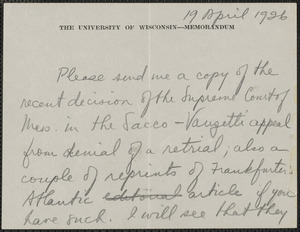 19 April 1926
THE UNIVERSITY OF WISCONSIN—MEMORANDUM
Please send me a copy of the
recent decision of the Supreme Court of
Mass. in the Sacco-Vanzetti appeal
from denial of a retrial; also a
couple of reprints of Frankfurter's
Atlantic editorial article if you
have such. I will see that they